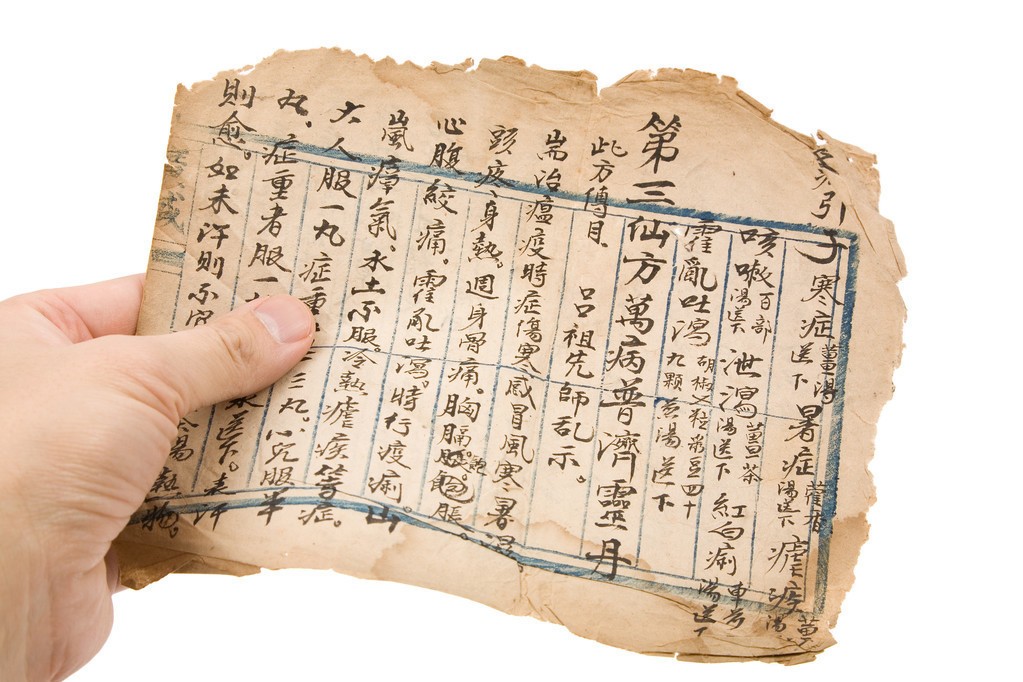 引子 寒症薑湯送下 暑症藿香湯送下 瘧疾薑湯
咳嗽百部湯送下 泄瀉薑茶湯送下 紅白痢車前湯送下
霍亂吐瀉胡椒 九顆 豆四十 湯送下
第三仙方萬病普濟靈丹
此方傳自 呂祖先師乱示。
耑治瘟疫時症傷寒感冒風寒暑湿
頭疼身熱。週身骨痛。胸膈膨脹
心腹絞痛。霍乱吐瀉。時行疫痢。山
嵐瘴氣。水土不服。冷熱瘧疾等症。
大人服一丸 症重 三丸。小兒服半
丸、症重者服一 送下。表汗
則愈。如未汗則不 湯 熱物。